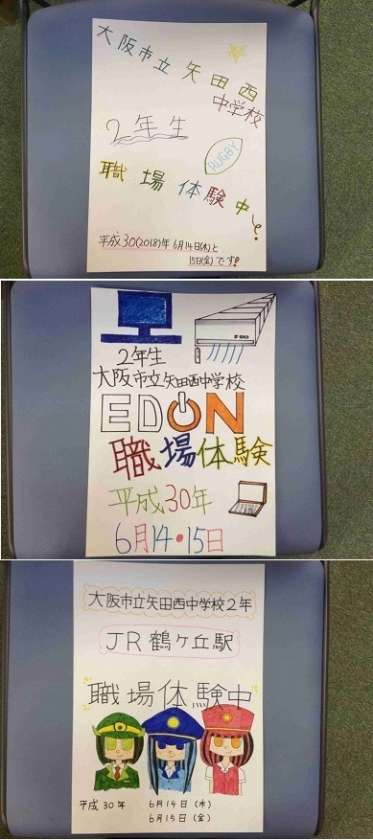 大阪市立矢田西
中学校
2年生
RUGBY
職場体験中です!
平成30(2018)年6月14日(木)と
15日(金)です!
2年生
大阪市立矢田西中学校
EDION
職場体験
平成30年
6月14・15日
大阪市立矢田西中学校2年
JR鶴ヶ丘駅
職場体験中
平成30年 6月14日(木)
6月15日(金)